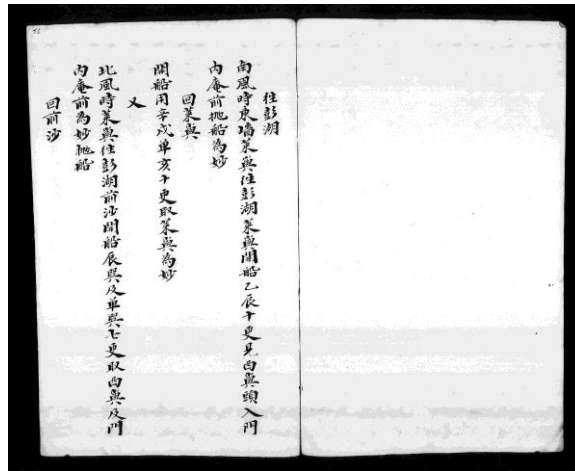 往彭湖
南風時東墙萊與往彭湖萊與開船乙辰十更見西與頭入門
內庵前抛船為妙
回萊與
開船用辛戌单亥十更取萊與為妙
又
北風時萊與往彭湖前沙開船辰巽及单巽七更取西與及門
內庵前為妙抛船
回前沙